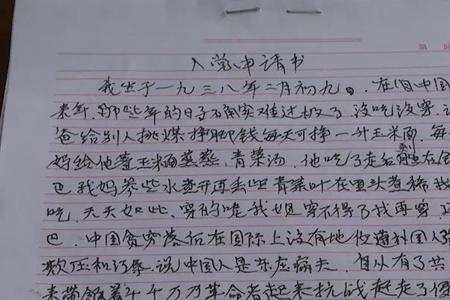 第
入党申请书
我生于一九三八年二月初九。在旧中国
来年,那些年的日子确实难过极了,没吃没穿,
爸给别人挑煤挣脚钱每天可挣一升玉米面,每
妈给他蒸玉米面蒸蒸,青菜汤,他吃了走
巴我妈参些水煮开再丢些青菜叶在里头煮稀
吃,天天如此,穿的嘛我姐穿不得了我再穿,
巴,中国贫穷落后在国际上没有地位遭外国人
欺压和污辱,说中国人是东亚病夫,自从有了共
来带领着千千万万革命者起来抗战赶走了